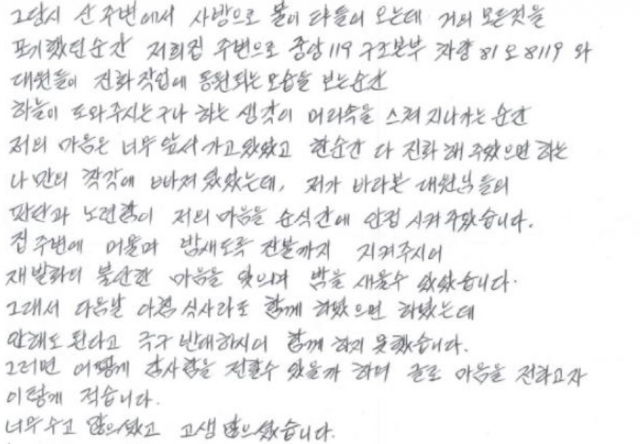 그당시 산 주변에서 사방으로 불이 타들어 오는데 거의 모든것을
포기했던순간 저희집 주변으로 중앙119 구조본부 차량 81오8119 와
대원들이 진화작업에 동원되는 모습을 보는순간
하늘이 도와주시는구나 하는 생각이 머리속을 스쳐 지나가는 순간
저의 마음은 너무 앞서 가고 있었고 한순간 다 진화해 주었으면 하는
나만의 착각에 빠져 있었는데, 제가 바라본 대원님들의
판단과 노련함이 저의 마음을 순식간에 안정 시켜주었습니다.
집주변에 머물며 밤새도록 잔불까지 지켜주시어
재발화의 불안한 마음을 잊으며 밤을 새울수 있었습니다.
그래서 다음날 아침 식사라도 함께 하였으면 하였는데
안해도 된다고 극구 반대하시어 함께 하지 못했습니다.
그러면 어떻게 감사함을 전할수 있을까 하며 글로 마음을 전하고자
이렇게 적습니다.
너무 수고 많으셨고 고생 많으셨습니다.